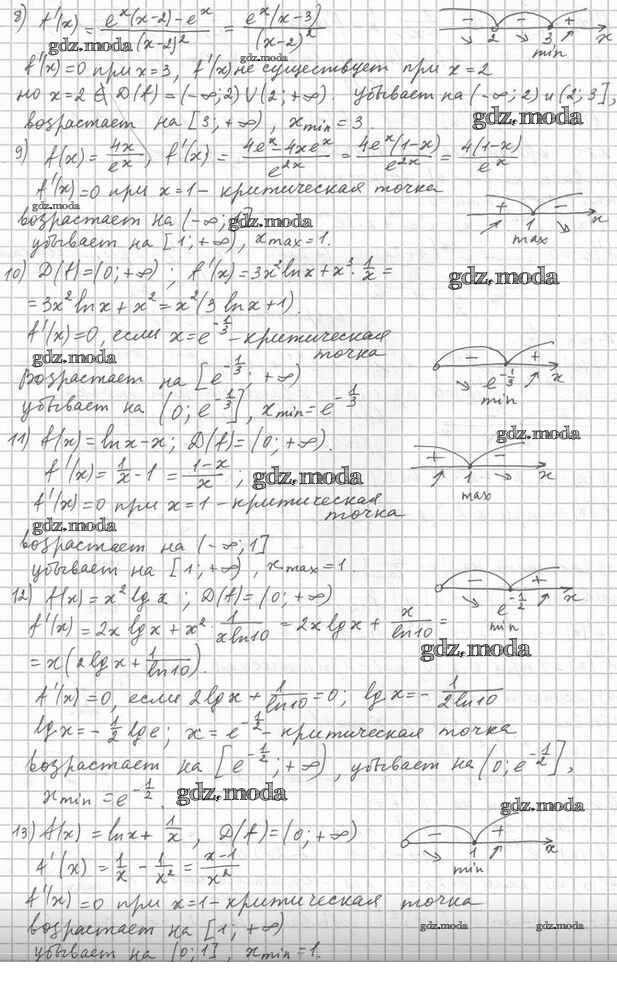 8) f'(x) = (e^x(x-2) - e^x)/(x-2)² = e^x(x-3)/(x-2)²
- - + 2 3 x min
gdz.moda
f'(x)=0 при x=3, f'(x) не существует при x=2
но x=2 ∉ D(f)=(-∞;2)∪(2;+∞). убывает на (-∞;2) и (2;3],
gdz.moda
возрастает на [3;+∞), x min=3
9) f(x)= 4x/e^x, f'(x) = (4e^x - 4xe^x)/e^2x = 4e^x(1-x)/e^2x = 4(1-x)/e^x
f'(x)=0 при x=1 - критическая точка
gdz.moda
+ - 1 x max
возрастает на (-∞;
gdz.moda
убывает на [1;+∞), x max=1.
10) D(f)=(0;+∞); f'(x)=3x² ln x + x³·1/x =
gdz.moda
= 3x² ln x + x² = x²(3 ln x + 1).
f'(x)=0, если x=e^-1/3 - критическая
точка
gdz.moda
- + e^-1/3 x min
возрастает на [e^-1/3; +∞)
убывает на (0; e^-1/3], x min = e^-1/3
gdz.moda
11) f(x)=ln x-x; D(f)=(0;+∞).
+ - 1 x max
f'(x)= 1/x - 1 = (1-x)/x;
gdz.moda
f'(x)=0 при x=1 - критическая
точка
gdz.moda
возрастает на (-∞;1]
убывает на [1;+∞), x max=1.
12) f(x)=x² lg x; D(f)=(0;+∞)
- + e^-1/2 x min
f'(x)=2x lg x + x²· 1/(x ln10) = 2x lg x + x/ln10 =
gdz.moda
= x(2 lg x + 1/ln10).
f'(x)=0, если 2 lg x + 1/ln10 = 0; lg x = - 1/(2 ln10)
lg x = - 1/2 lg e; x = e^-1/2 - критическая точка
возрастает на [e^-1/2; +∞), убывает на (0; e^-1/2],
x min = e^-1/2.
gdz.moda
gdz.moda
13) f(x) = ln x + 1/x, D(f)=(0;+∞)
- + 1 x min
f'(x) = 1/x - 1/x² = (x-1)/x²
f'(x)=0 при x=1 - критическая точка
возрастает на [1;+∞)
gdz.moda gdz.moda
убывает на (0;1], x min=1.